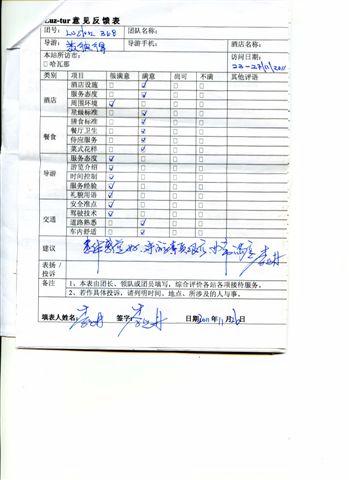 Luz-tur 意见反馈表
团号: 368 团队名称:
导游: 导游手机: 酒店名称:
本站所访市: 访问日期:
□ 哈瓦那 23-27/11/2011
类别 项目 很满意 满意 尚可 不满 其他评语
酒店 酒店设施 □ ✓ □ □
服务态度 □ ✓ □ □
周围环境 ✓ □ □ □
星级标准 □ ✓ □ □
餐食 膳食标准 □ ✓ □ □
餐厅卫生 □ ✓ □ □
侍应服务 □ ✓ □ □
菜式花样 □ ✓ □ □
导游 服务态度 ✓ □ □ □
游览介绍 ✓ □ □
时间控制 ✓ □ □
服务经验 ✓ □ □
礼貌用语 ✓ □ □
交通 安全准点 ✓ □ □
驾驶技术 ✓ □ □ □
道路熟悉 □ ✓ □ □
车内舒适 □ ✓ □ □
建议
表扬/
投诉
备注 1、本表由团长、领队或团员填写,综合评价各站各项接待服务。
2、若作具体投诉,请列明时间、地点、所涉及的人与事。
填表人姓名: 签字: 日期2011年11月26日